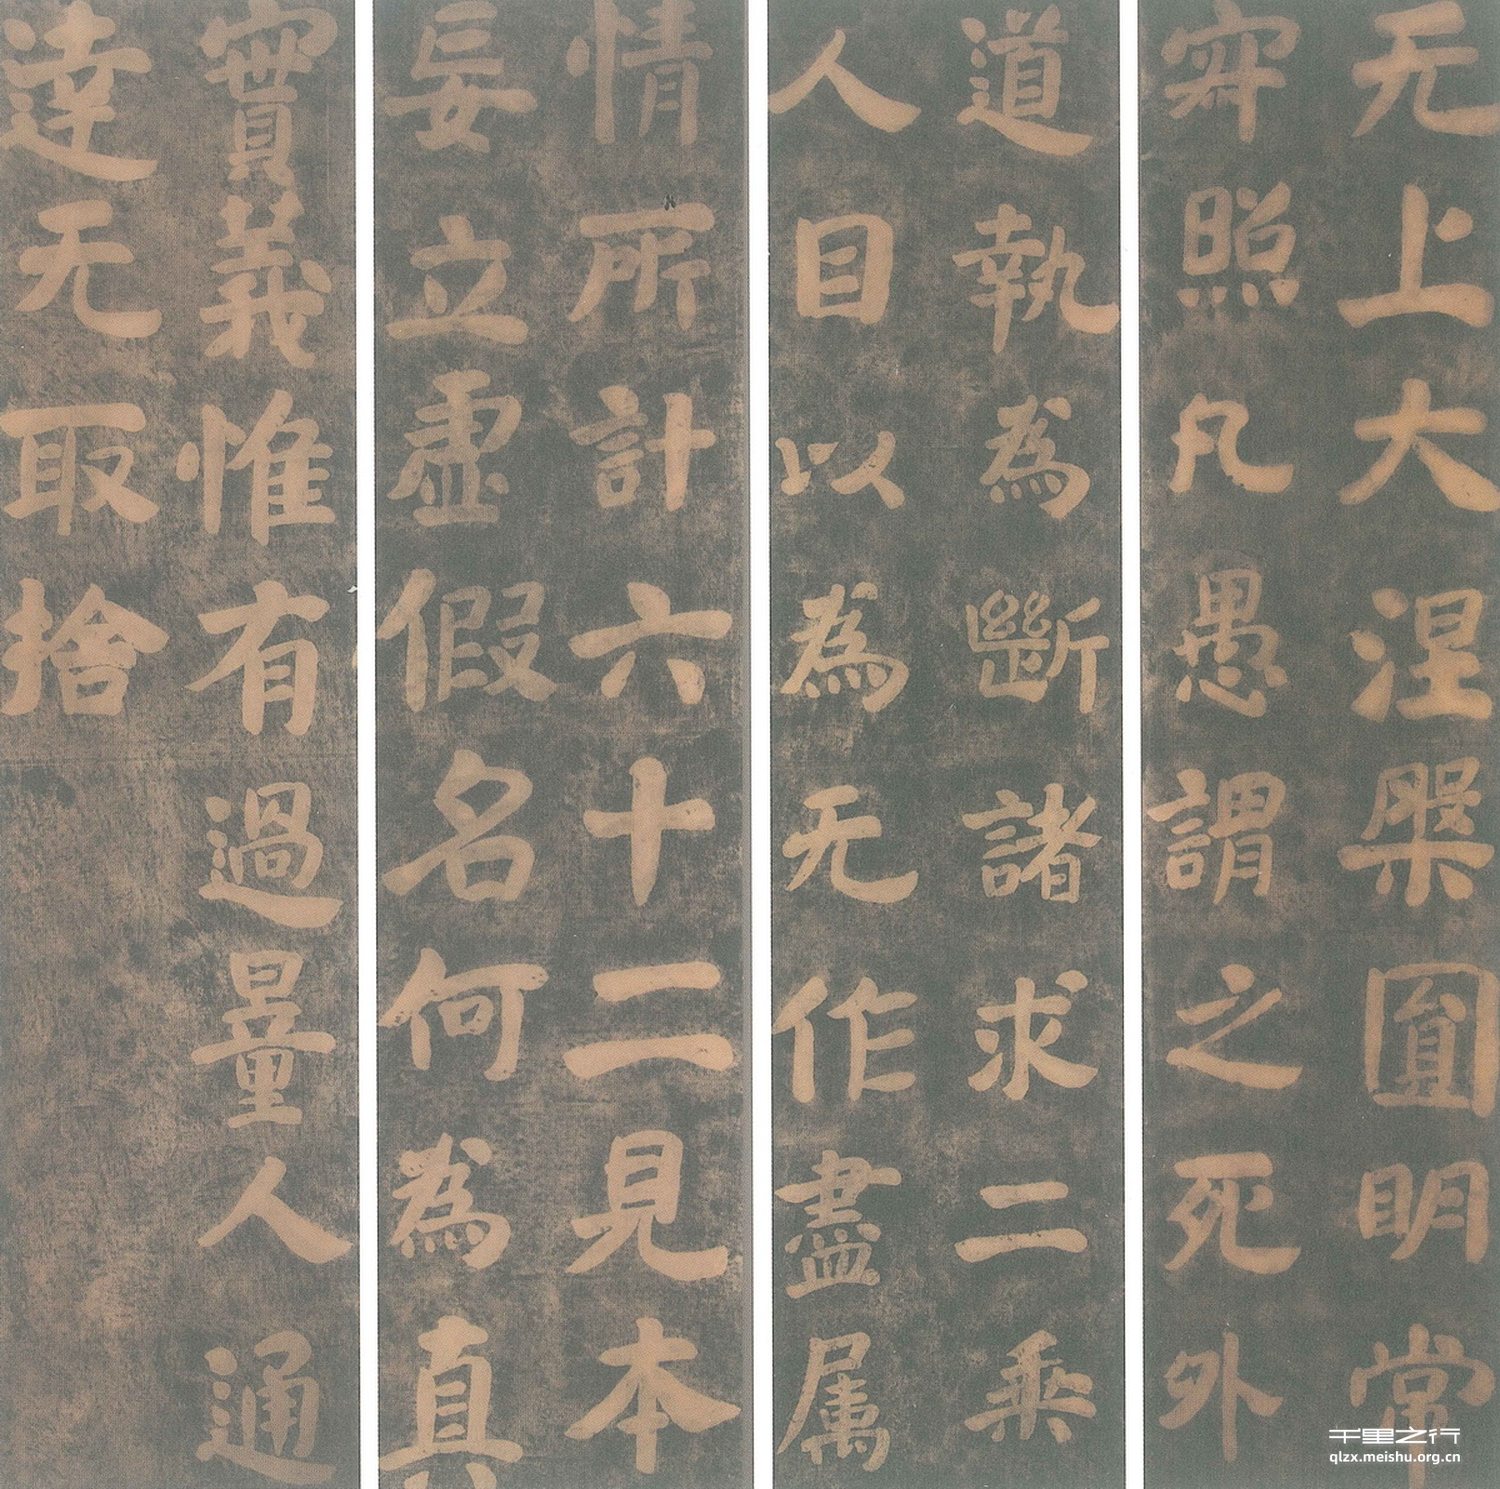 无上大涅槃圎明常
寂照凡愚謂之死外
道執為斷諸求二乘
人目以為无作盡属
情所計六十二見本
妄立虛假名何為真
實義惟有過量人通
達无取捨
千里之行
qlzx.meishu.org.cn